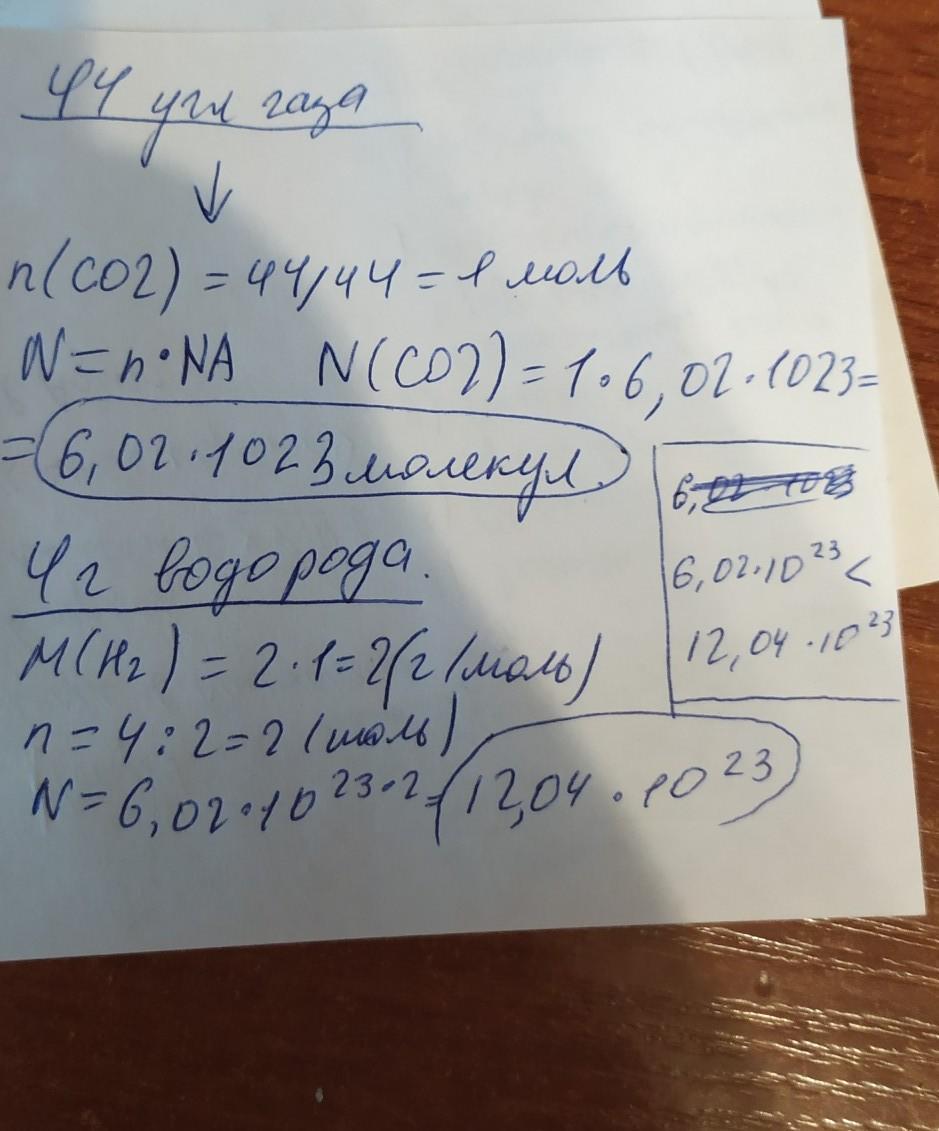 44 угл газа
↓
n(CO2) = 44/44 = 1 моль
N = n•NA N(CO2) = 1•6,02•1023=
= 6,02•1023 молекул.
4г водорода.
M(H₂) = 2•1=2(г/моль)
n = 4:2=2 (моль)
N = 6,02•10²³•2= 12,04•10²³
6,02•1023
6,02•10²³ <
12,04•10²³